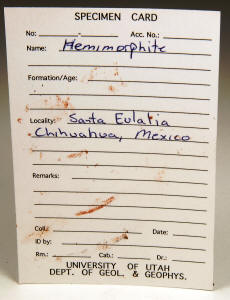 SPECIMEN CARD
No: Acc. No.:
Name: Hemimorphite
Formation/Age:
Locality: Santa Eulalia
Chihuahua, Mexico
Remarks:
Coll.: Date:
ID by:
Rm.: Cab.: Dr.:
UNIVERSITY OF UTAH
DEPT. OF GEOL. & GEOPHYS.